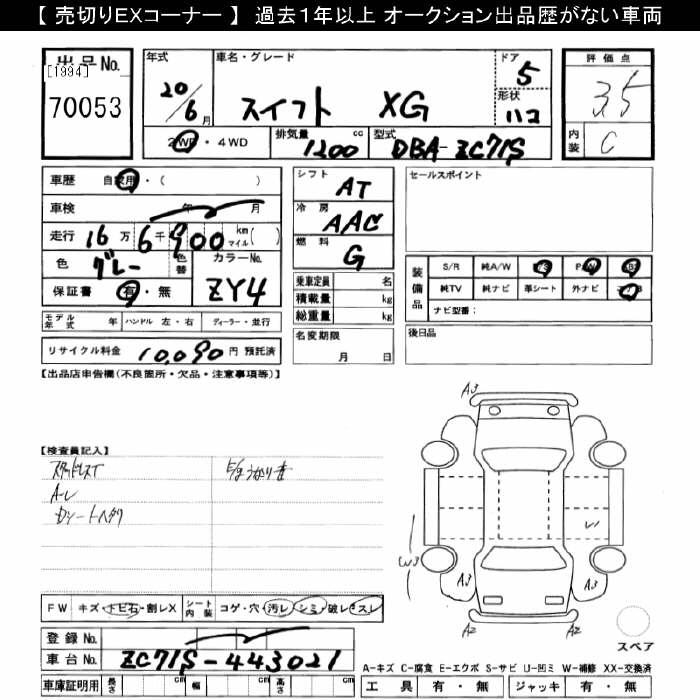 【 売切りEXコーナー 】 過去1年以上 オークション出品歴がない車両
出品No.
[1994]
70053
年式
20/6月
車名・グレード
スイフト XG
ドア 5
形状 ハコ
評価点
3.5
内装 C
2WD・4WD
排気量 1200 cc
型式 DBA-ZC71S
車歴 自家用・( )
車検 年 月
走行 16万6千900 km マイル( )
色 グレー 色替
カラーNo. ZY4
保証書 有・無
シフト AT
冷房 AAC
燃料 G
乗車定員 名
積載量 kg
総重量 kg
名変期限
月 日
セールスポイント
装備品
S/R 純A/W P/W
純TV 純ナビ 革シート 外ナビ
ナビ型番:
後日品
モデル年式 年 ハンドル 左・右 ディーラー・並行
リサイクル料金 10,090 円 預託済
【出品店申告欄(不良箇所・欠品・注意事項等)】
【検査員記入】
A-レ
FW キズ・トビ石・割レX シート内装 コゲ・穴・汚レ・シミ・破レ・スレ
登録No.
車台No. ZC71S-443021
車庫証明用 長さ cm 幅 cm 高さ cm
A3
W3
A3
A3
A2
A2
スペア
A-キズ C-腐食 E-エクボ S-サビ U-凹ミ W-補修 XX-交換済
工具 有・無 ジャッキ 有・無